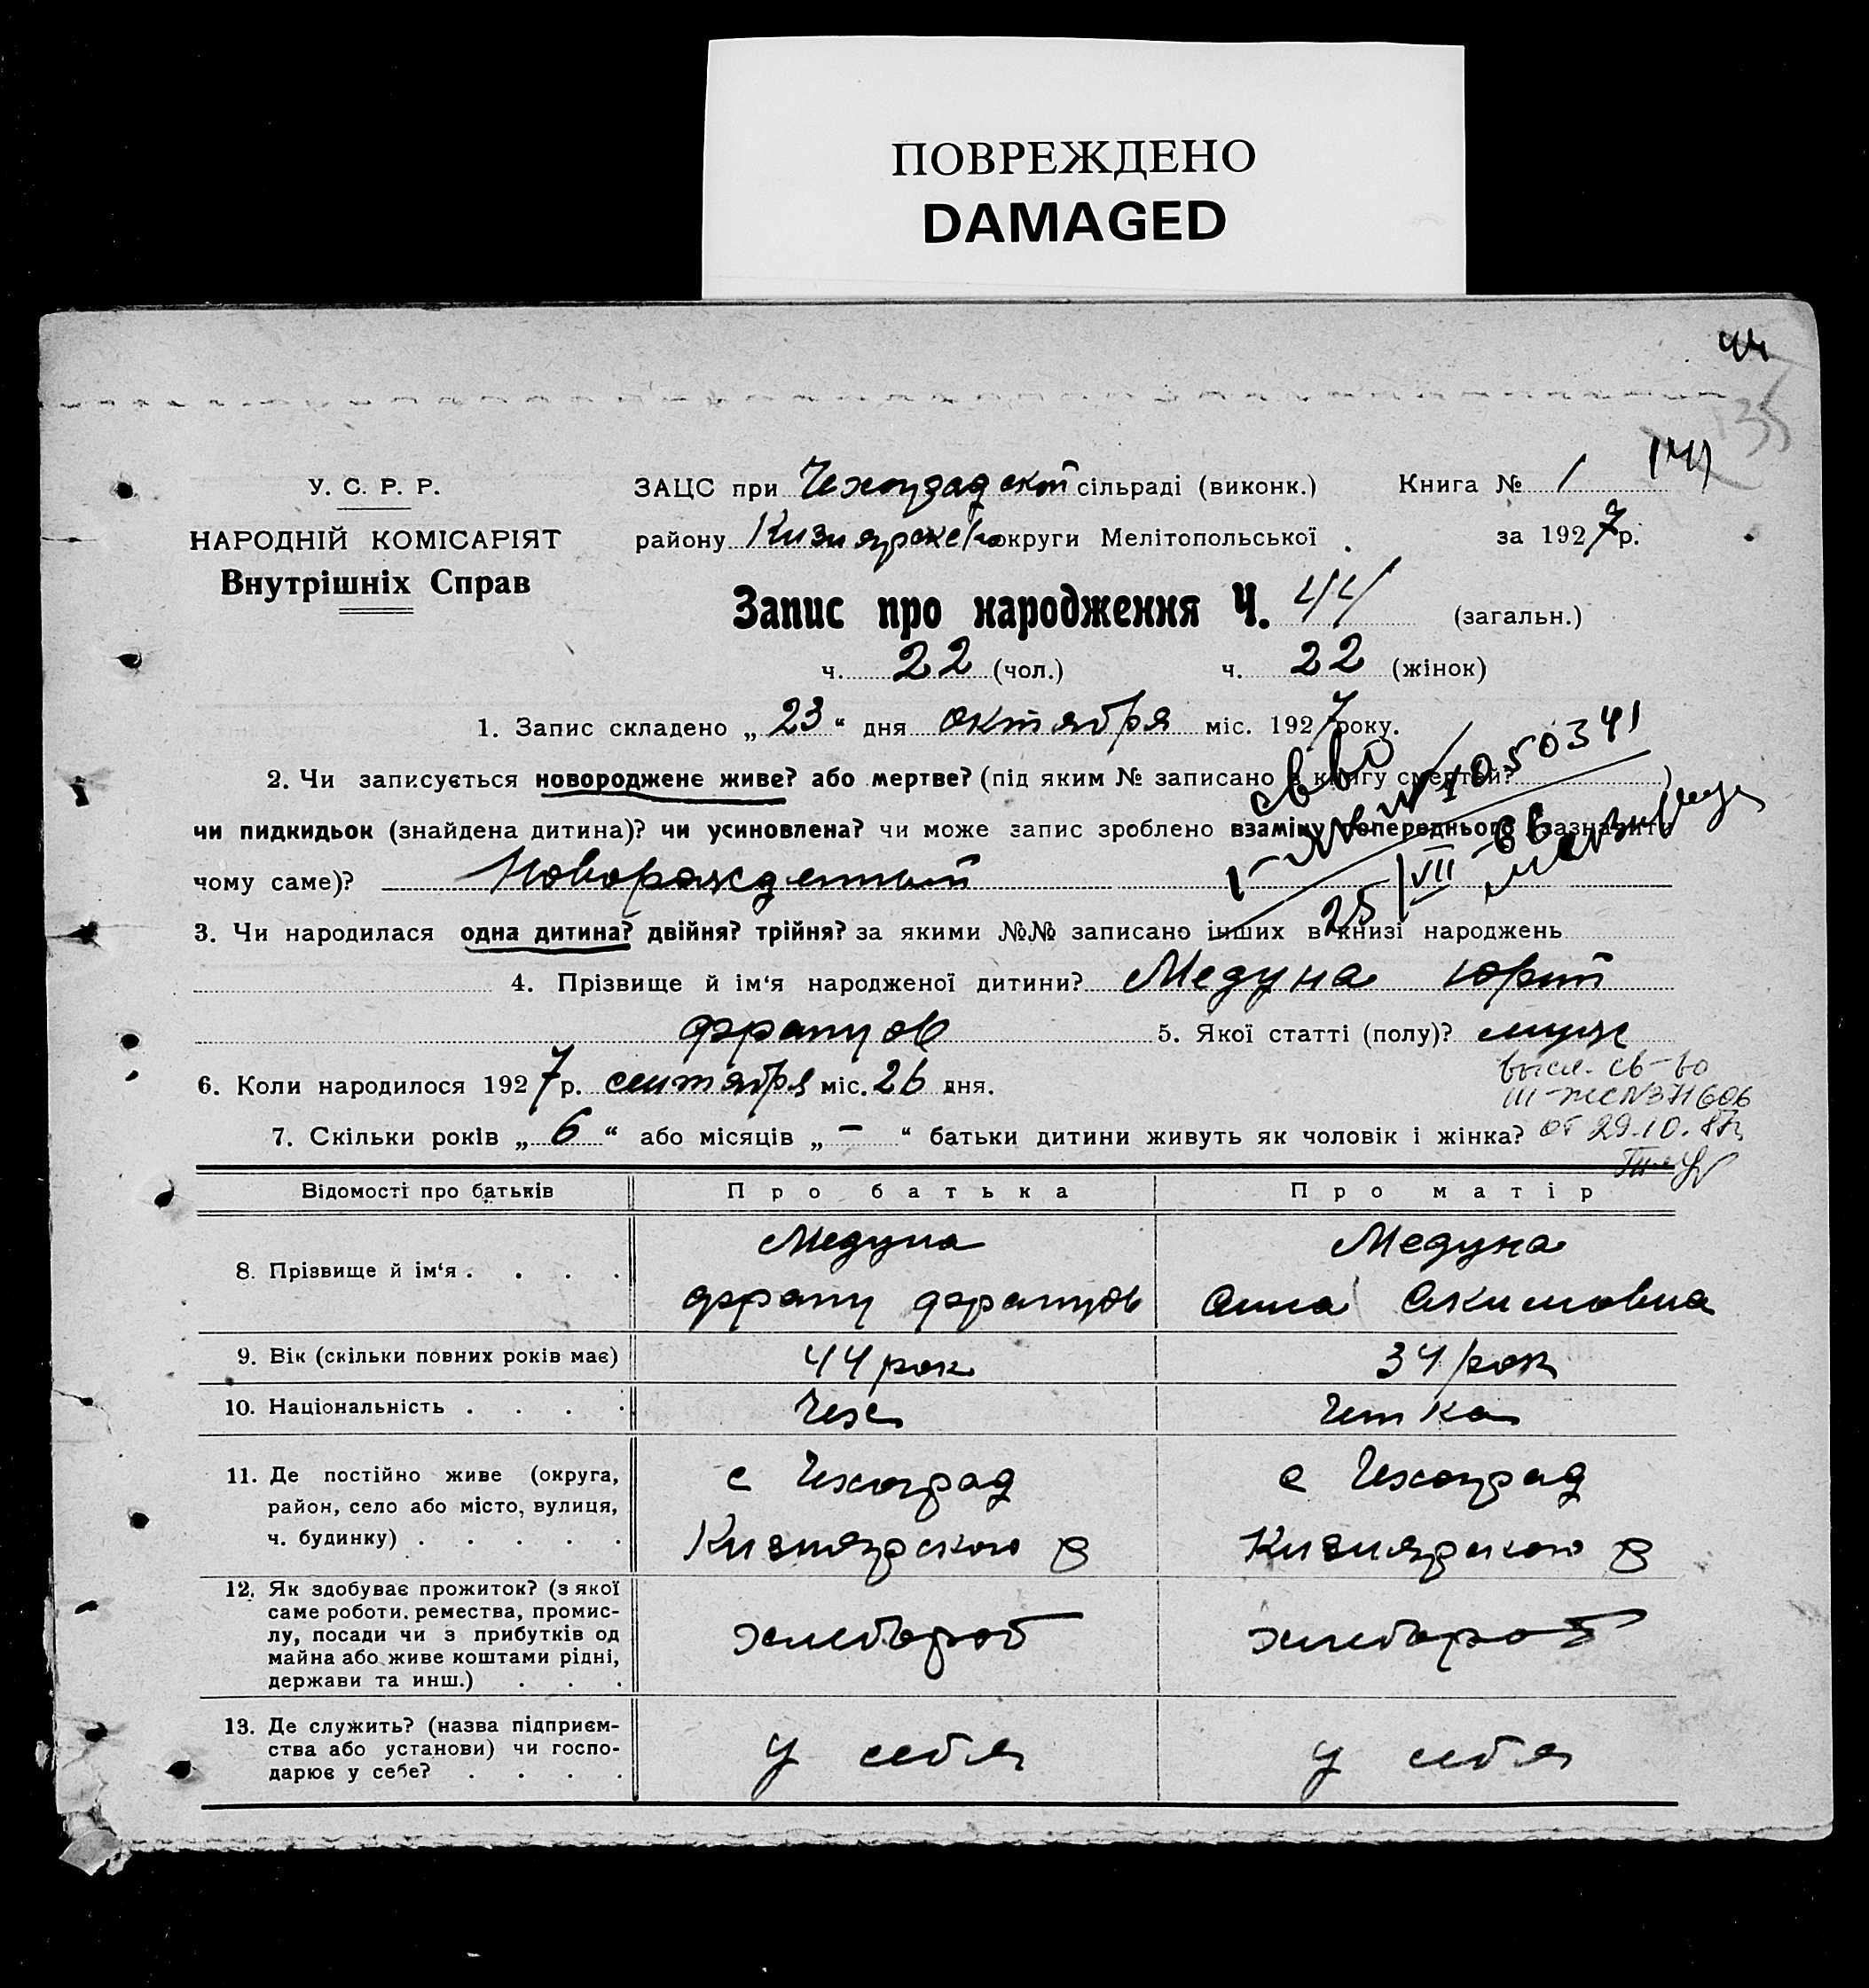 ПОВРЕЖДЕНО
DAMAGED
44
135
У. С. Р. Р.
НАРОДНІЙ КОМІСАРІЯТ
Внутрішніх Справ
ЗАЦС при Чехоградской сільраді (виконк.) Книга № 1
району Кизиярского округи Мелітопольської . за 1927 р.
Запис про народження Ч. 44 (загальн.)
ч. 22 (чол.) ч. 22 (жінок)
1. Запис складено „ 23 “ дня октября міс. 1927 року.
2. Чи записується новороджене живе? або мертве? (під яким № записано в книгу смертей? )
чи пидкидьок (знайдена дитина)? чи усиновлена? чи може запис зроблено взаміну попереднього (зазначити
чому саме)? Новорожденный
св во
№ 1050341
25/VII-66
3. Чи народилася одна дитина? двійня? трійня? за якими №№ записано інших в книзі народжень
4. Прізвище й ім‘я народженої дитини? Медуна Юрий
Францов 5. Якої статті (полу)? муж
6. Коли народилося 1927 р. сентября міс. 26 дня.
высл. св-во
III-ЖС № 371606
от 29.10.87г
7. Скільки років „ 6 “ або місяців „ – “ батьки дитини живуть як чоловік і жінка?
Відомості про батьків Про батька Про матір
8. Прізвище й ім‘я . . . . Медуна Франц Францов Медуна Анна Акимовна
9. Вік (скільки повних років має) 44 рок 34 рок
10. Національність . . . . Чех Чешка
11. Де постійно живе (округа,
район, село або місто, вулиця,
ч. будинку) . . . . .
с Чехоград с Чехоград
Кизиярского р Кизиярского р
12. Як здобуває прожиток? (з якої
саме роботи, ремества, промис-
лу, посади чи з прибутків од
майна або живе коштами рідні,
держави та инш.) . . .
хлебороб хлебороб
13. Де служить? (назва підприєм-
ства або установи) чи госпо-
дарює у себе? . . . .
у себя у себя